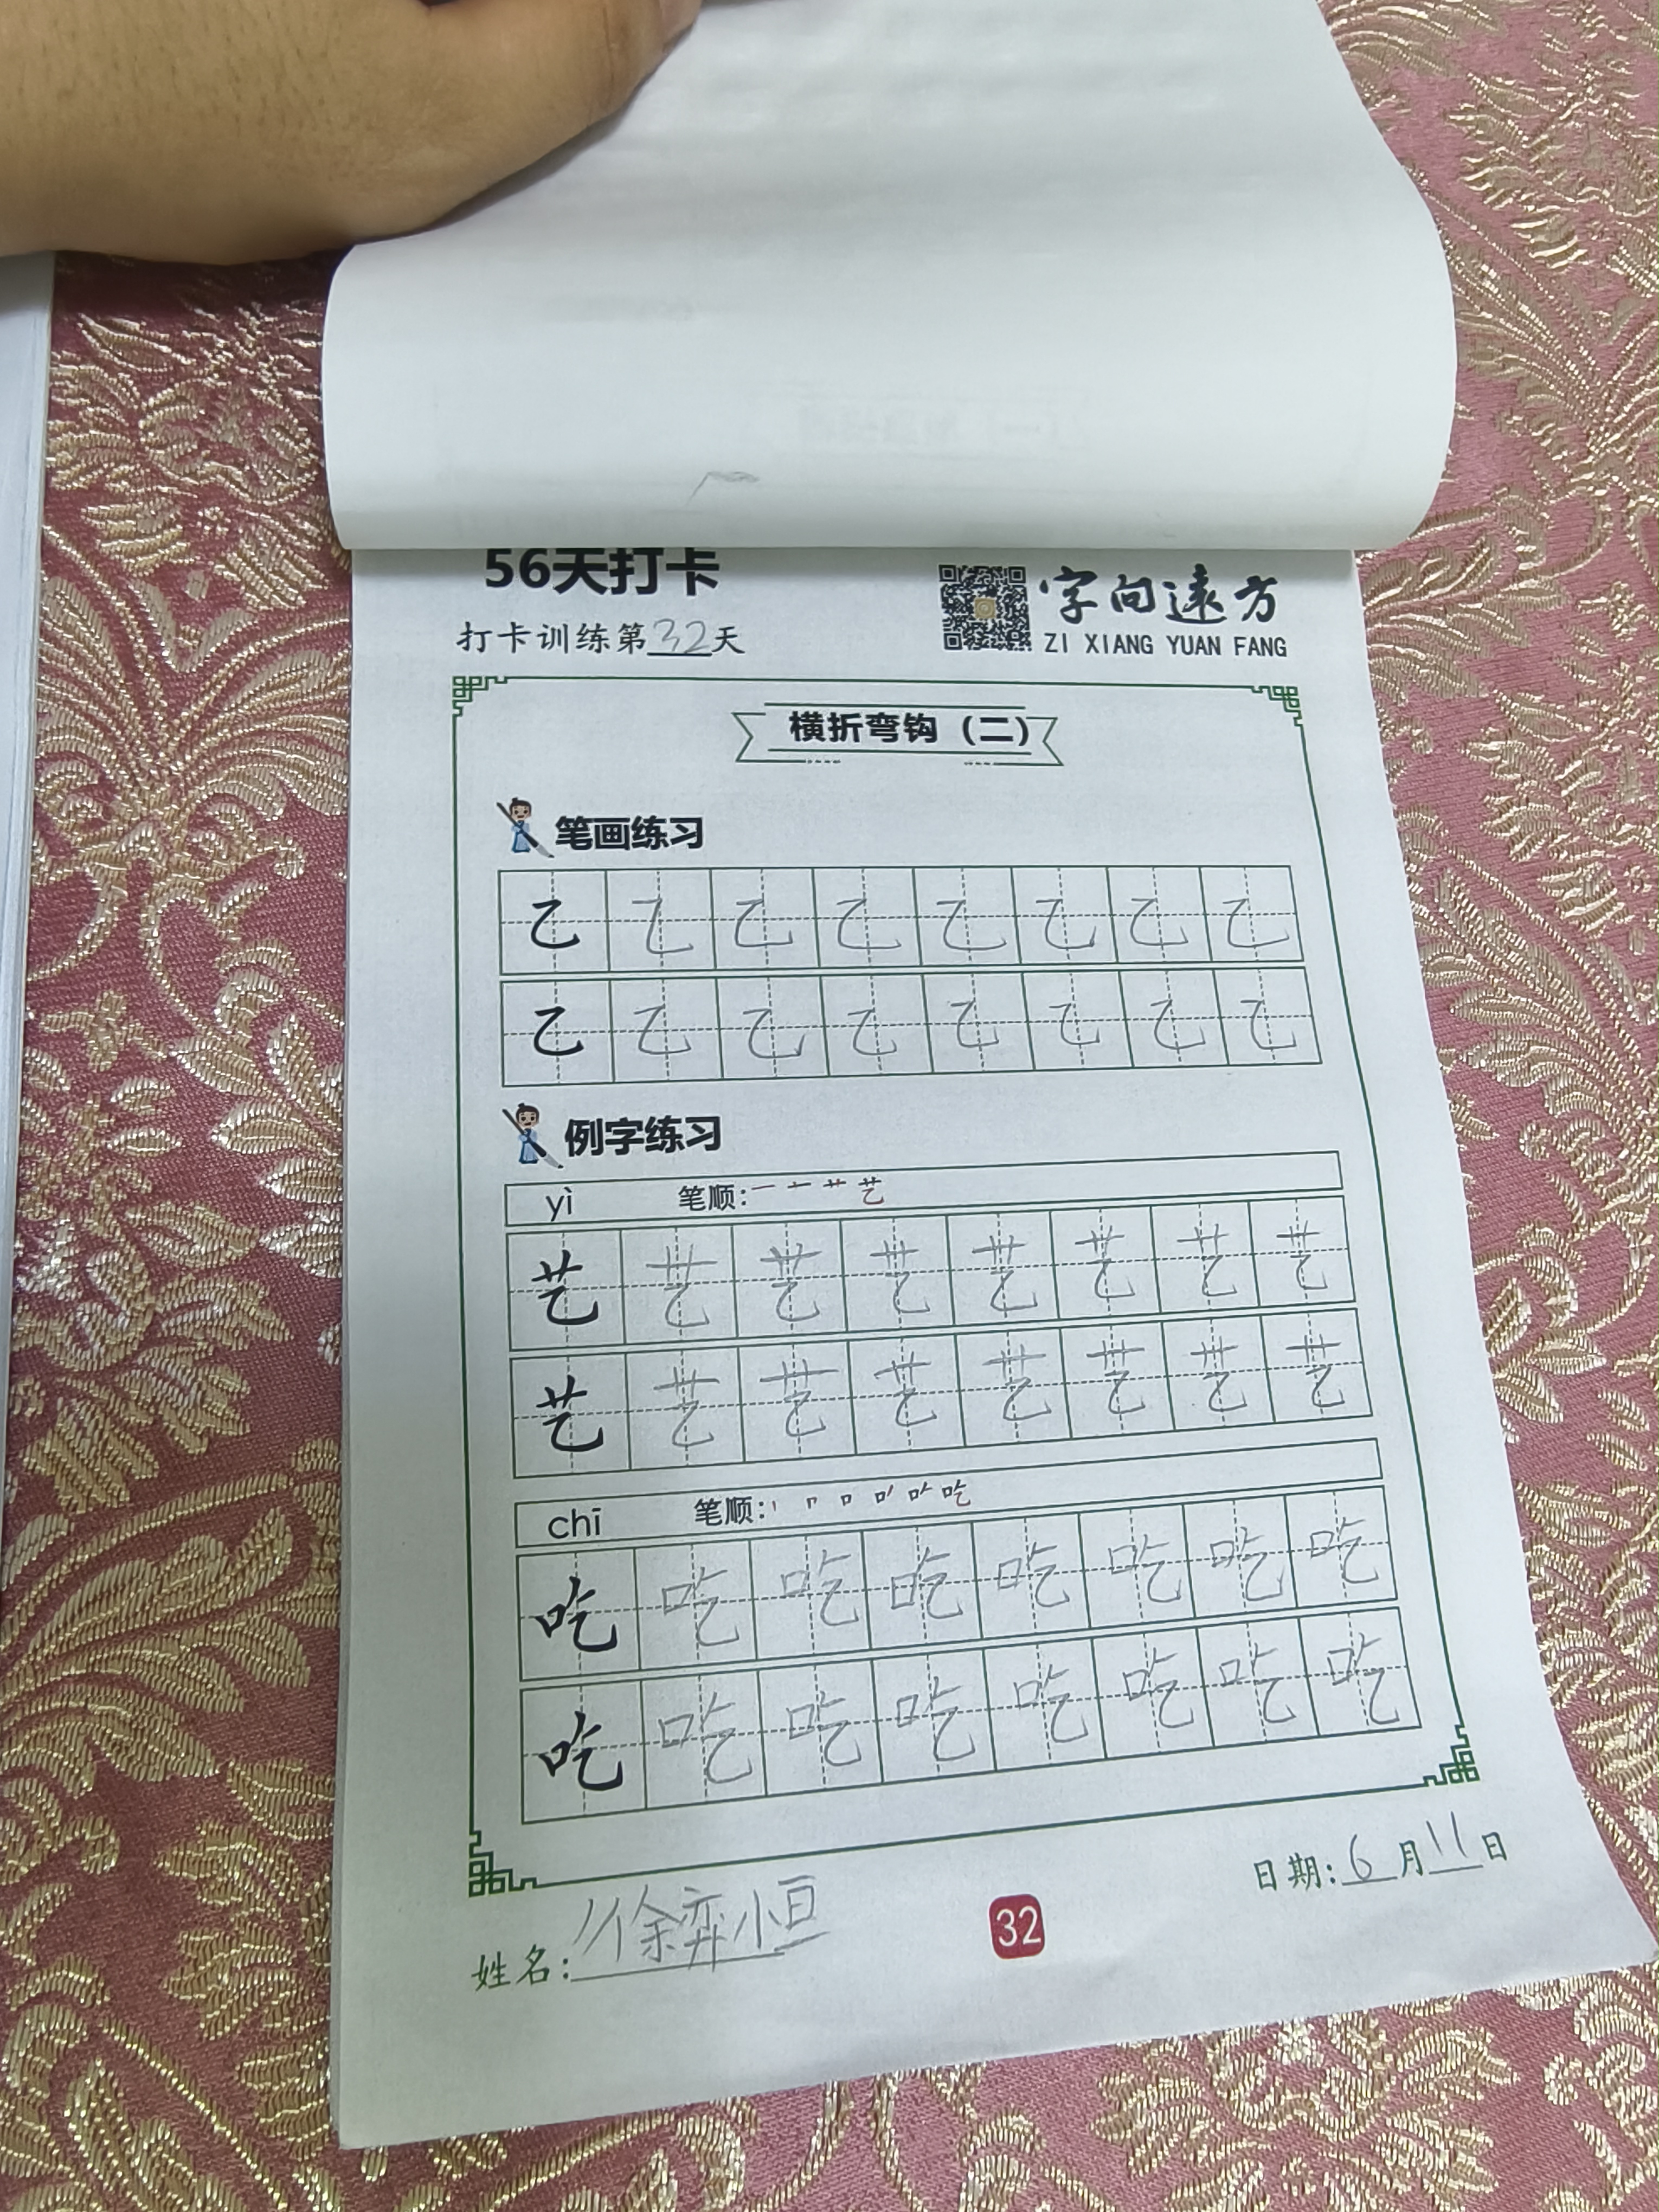 56天打卡
打卡训练第32天
字向远方
ZI XIANG YUAN FANG
横折弯钩（二）
笔画练习
乙 乙 乙 乙 乙 乙 乙 乙
乙 乙 乙 乙 乙 乙 乙 乙
例字练习
yì 笔顺: 一 艹 艺
艺 艺 艺 艺 艺 艺 艺 艺
艺 艺 艺 艺 艺 艺 艺 艺
chī 笔顺: 丨 口 吃
吃 吃 吃 吃 吃 吃 吃 吃
吃 吃 吃 吃 吃 吃 吃 吃
日期: 6月11日
姓名: 徐弈恒
32